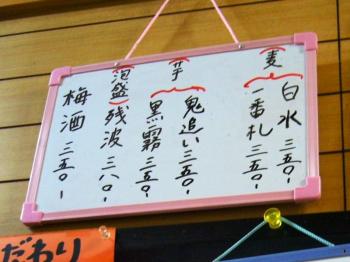 (麦)
白水 三五〇-
一番札 三五〇-
(芋)
鬼追い 三五〇-
黒霧 三五〇-
(泡盛)
残波 三八〇-
梅酒 三五〇-
だわり